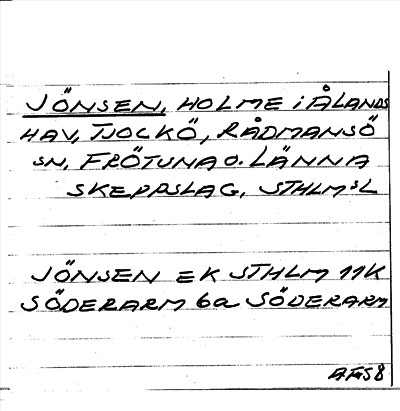 JÖNSEN, HOLME i ÅLANDS
HAV, TJOCKÖ, RÅDMANSÖ
SN, FRÖTUNA O. LÄNNA
SKEPPSLAG, STHLM:S L
JÖNSEN EK STHLM 11K
SÖDERARM 6a SÖDERARM